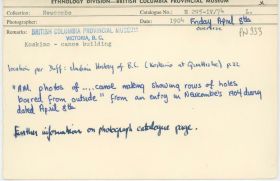 ETHNOLOGY DIVISION—BRITISH COLUMBIA PROVINCIAL MUSEUM
Collection: Newcombe
Photographer: Date: 1904 Friday April 8th
Remarks: BRITISH COLUMBIA PROVINCIAL MUSEUM PN 933
VICTORIA, B.C.
Koskimo - canoe building
Location per Duff: Indian History of B.C. (Koskimo at Quattishe) p.22
"All photos of .... canoe making showing rows of holes
bored from outside" from an entry in Newcombe's 1904 diary
dated April 8th
Further information on photograph catalogue page.